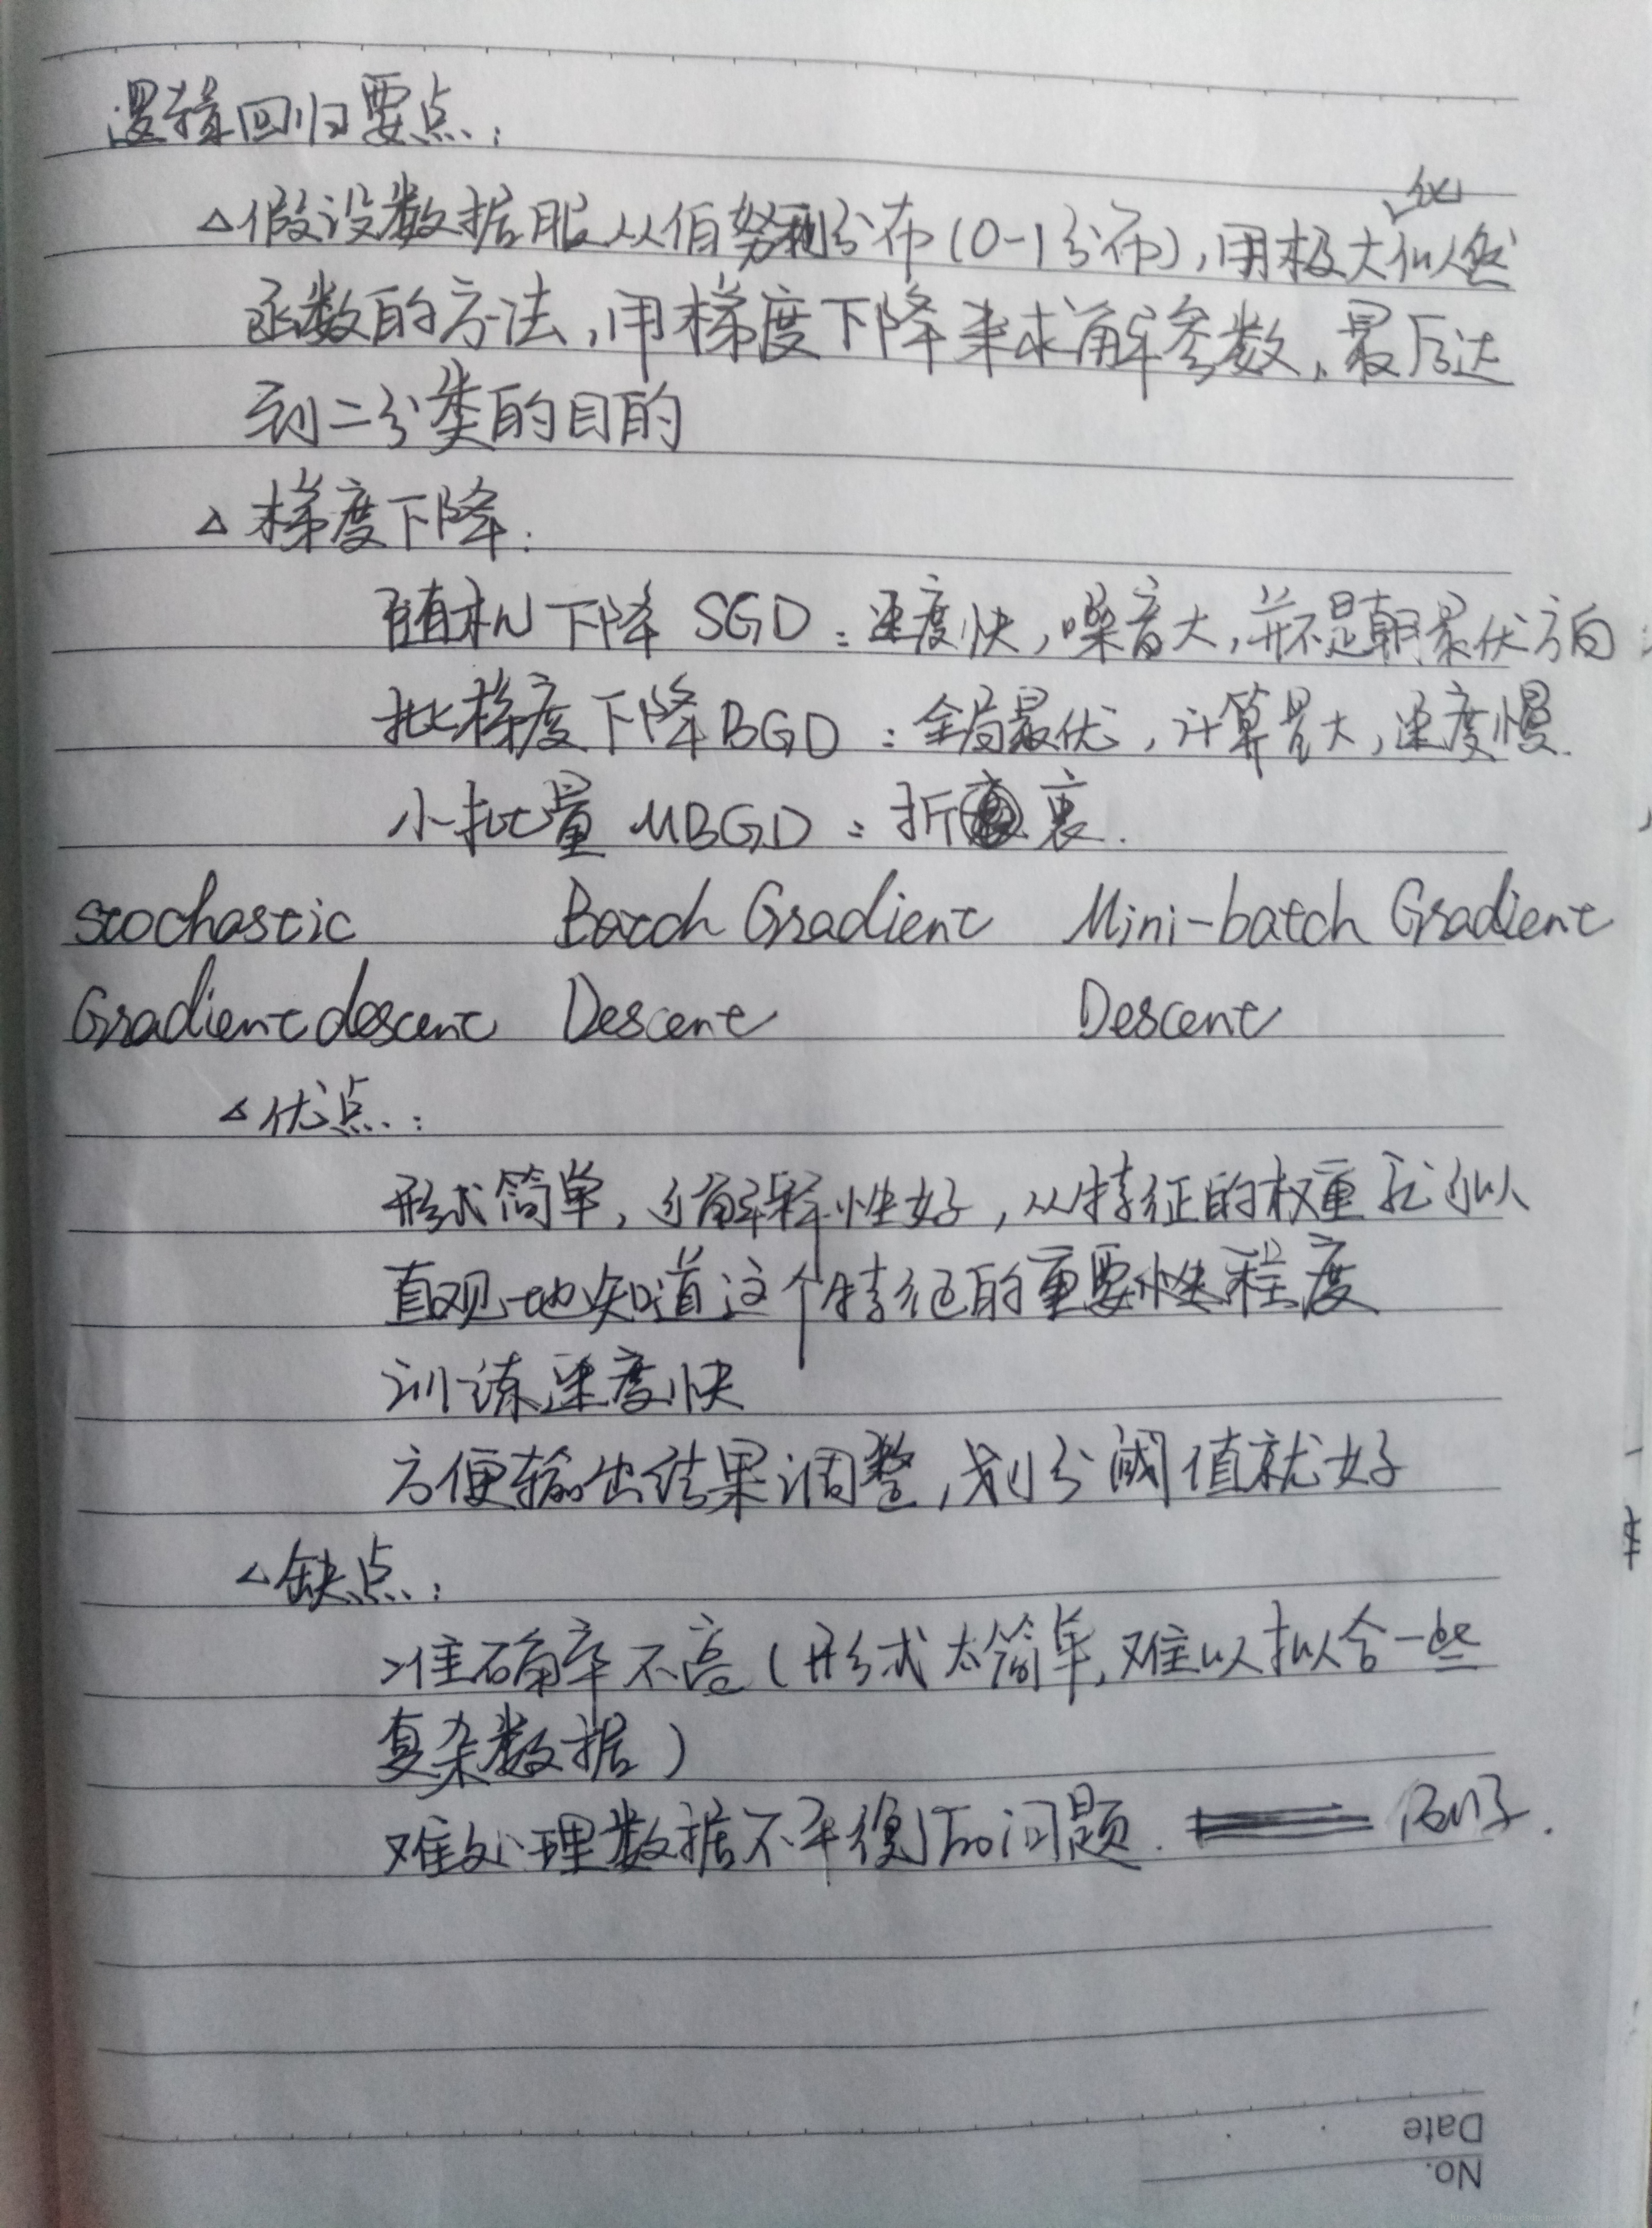 逻辑回归要点:
△假设数据服从伯努利分布(0-1分布),用极大化似然
函数的方法,用梯度下降来求解参数,最后达
到二分类的目的
△梯度下降:
随机下降 SGD:速度快,噪音大,并不是朝最优方向
批梯度下降BGD:全局最优,计算量大,速度慢.
小批量 MBGD:折衷.
Stochastic Batch Gradient Mini-batch Gradient
Gradient descent Descent Descent
△优点:
形式简单,可解释性好,从特征的权重可以
直观地知道这个特征的重要性程度
训练速度快
方便输出结果调整,划分阈值就好
△缺点:
准确率不高(形式太简单,难以拟合一些
复杂数据)
难处理数据不平衡的问题.
Date
No.